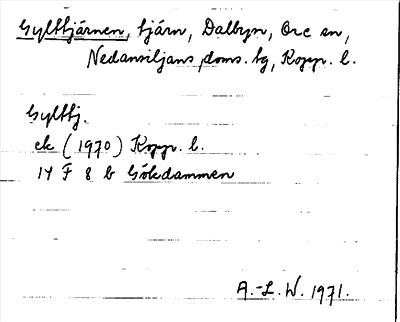 Gylltjärnen, tjärn, Dalbyn, Ore sn,
Nedansiljans doms. tg, Kopp. l.
Gylltj.
ek (1970) Kopp. l.
14 F 8 b Gökdammen
A.-L. W. 1971.